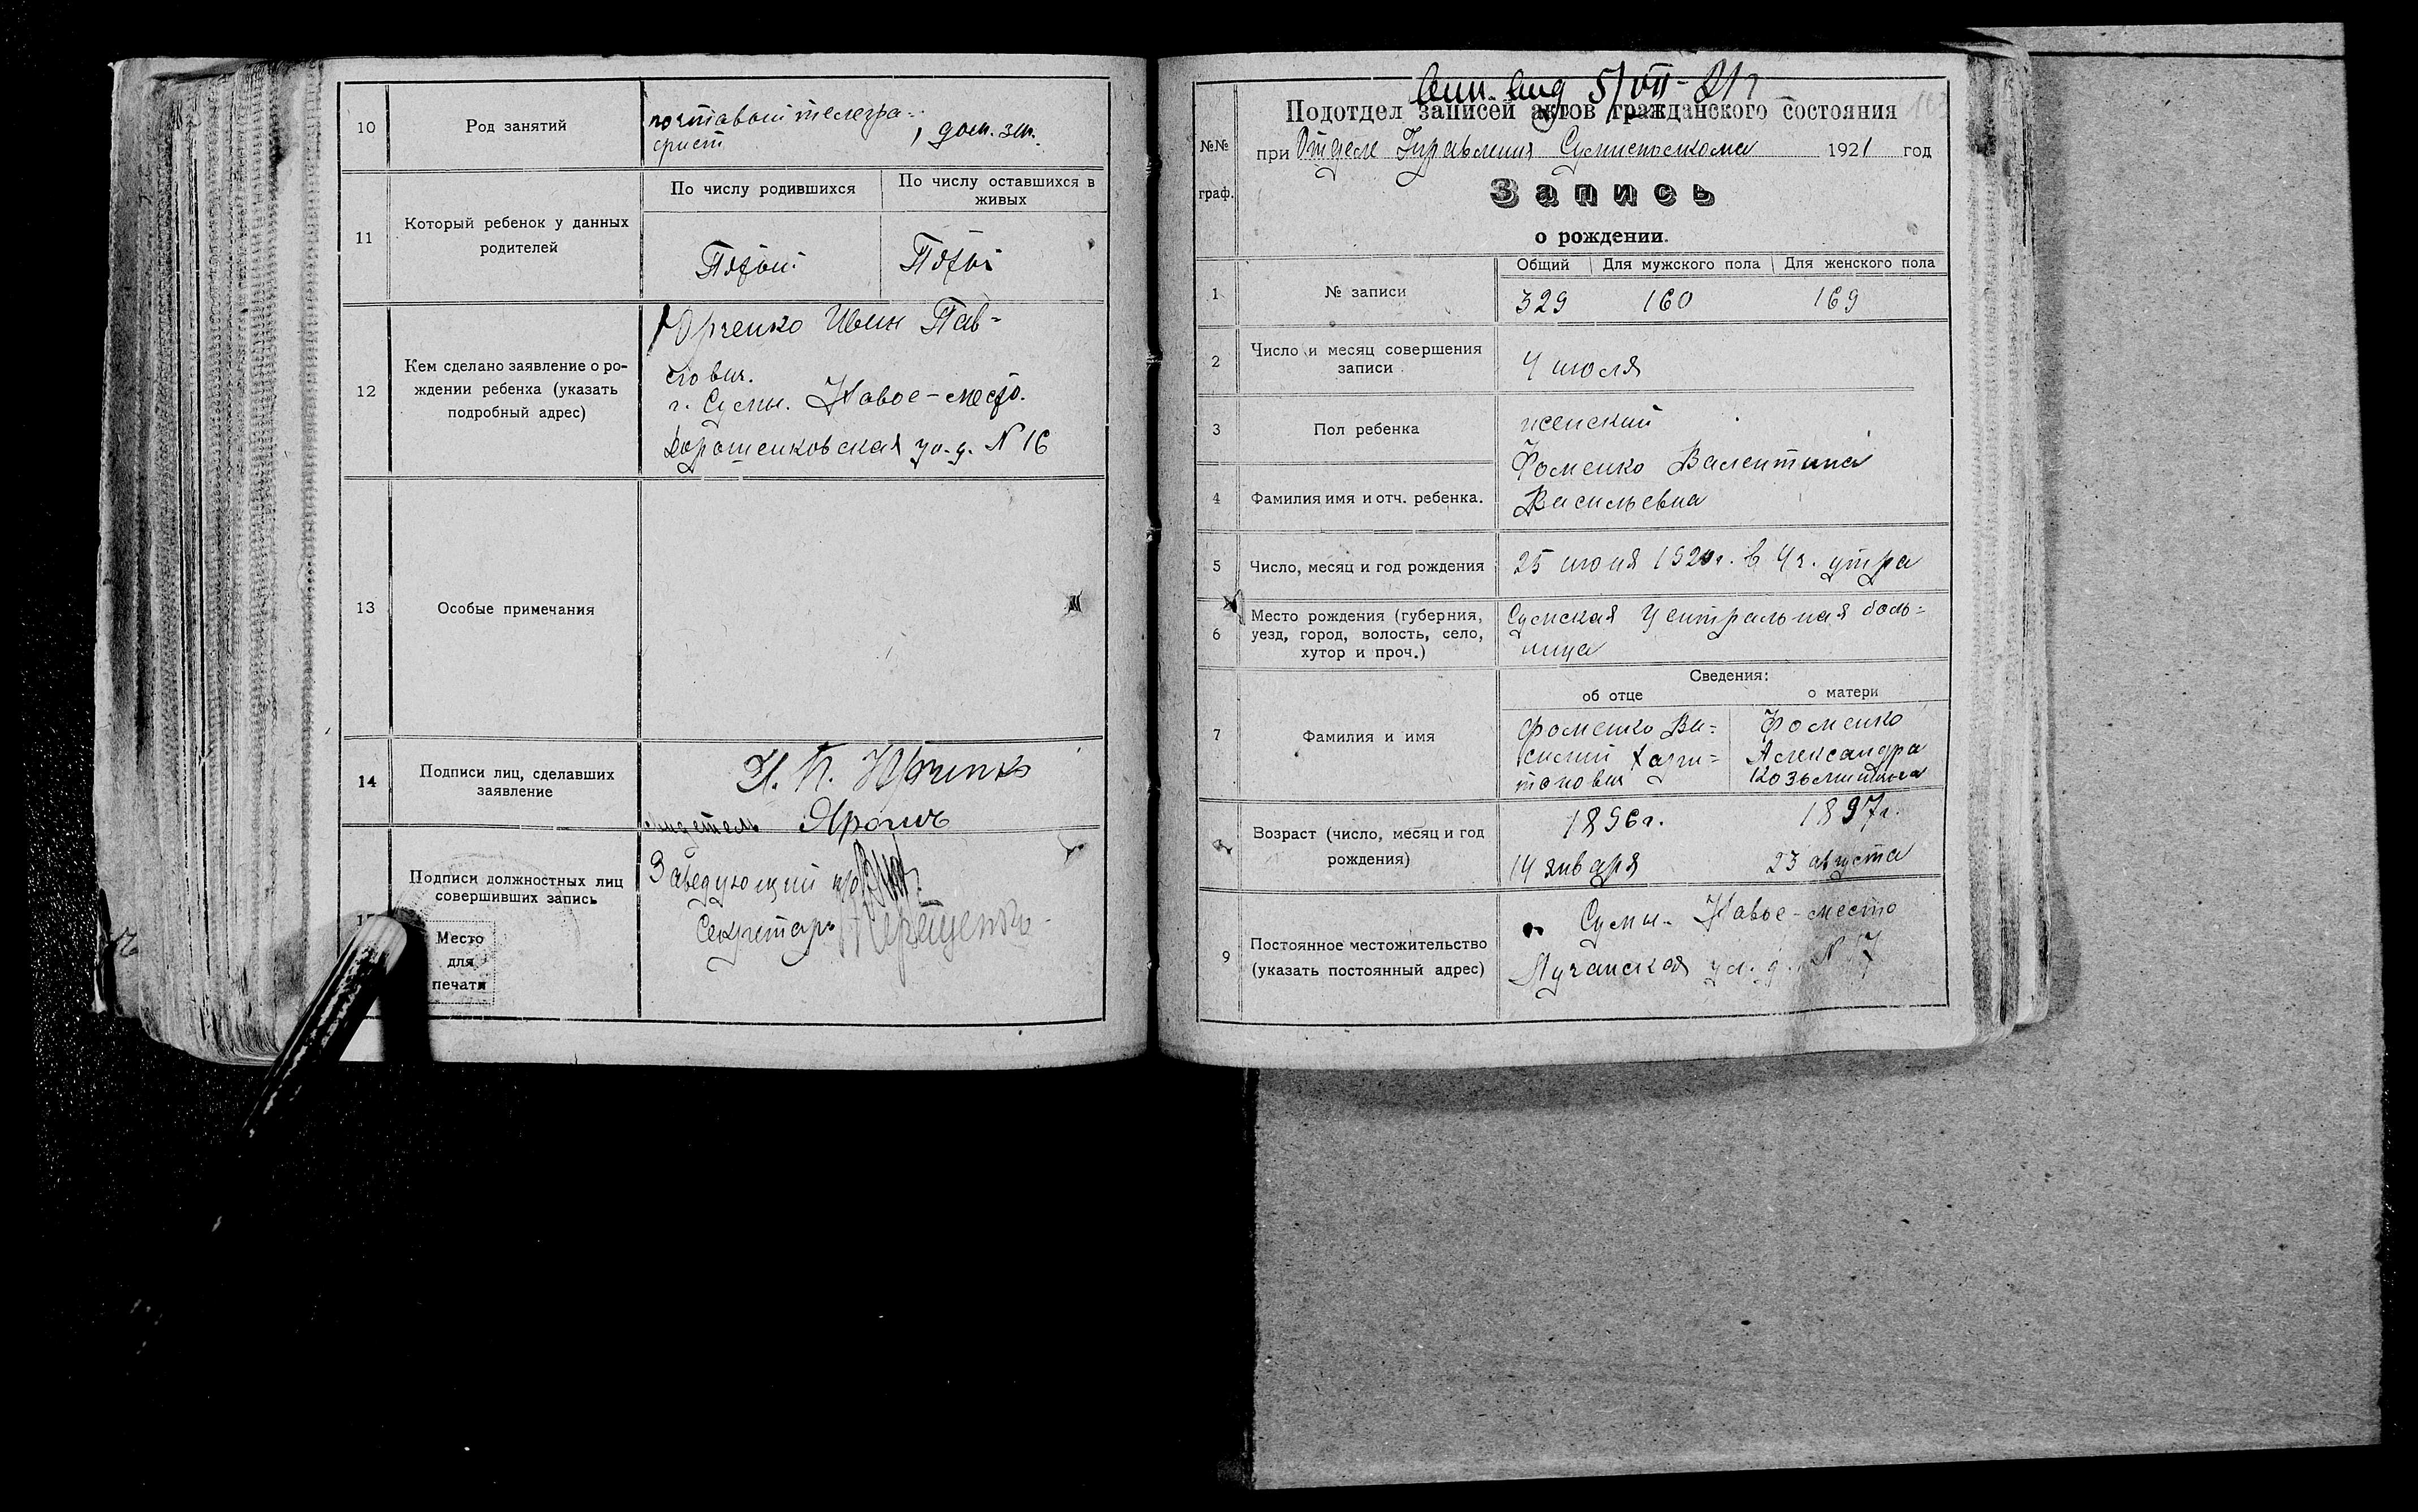 10
Род занятий
почтовый телегра-
фист, дом. зан.
11
Который ребенок у данных
родителей
По числу родившихся
По числу оставшихся в
живых
Пятый
Пятый
12
Кем сделано заявление о ро-
ждении ребенка (указать
подробный адрес)
Юрченко Иван Пав-
лович.
г. Сумы. Новое-место.
Дорошенковская ул. д. N 16
13
Особые примечания
14
Подписи лиц, сделавших
заявление
И. П. Юрченко
свидетель
Подписи должностных лиц
совершивших запись
Место
для
печати
Заведующий п/о
Секретарь
5/VII-21г
Подотдел записей актов гражданского состояния
при Отделе Управления Сумисполкома 1921 год
№№
граф.
Запись
о рождении.
1
№ записи
Общий
Для мужского пола
Для женского пола
329
160
169
2
Число и месяц совершения
записи
4 июля
3
Пол ребенка
женский
4
Фамилия имя и отч. ребенка.
Фоменко Валентина
Васильевна
5
Число, месяц и год рождения
25 июня в 4 ч. утра
6
Место рождения (губерния,
уезд, город, волость, село,
хутор и проч.)
Сумская Центральная боль-
ница
7
Фамилия и имя
Сведения:
об отце
о матери
Фоменко Ва-
силий Хари-
тонович
Фоменко
Александра
Козьминична
Возраст (число, месяц и год
рождения)
1896г.
14 января
1897г.
23 августа
9
Постоянное местожительство
(указать постоянный адрес)
г. Сумы. Новое-место
ул. д. N 17